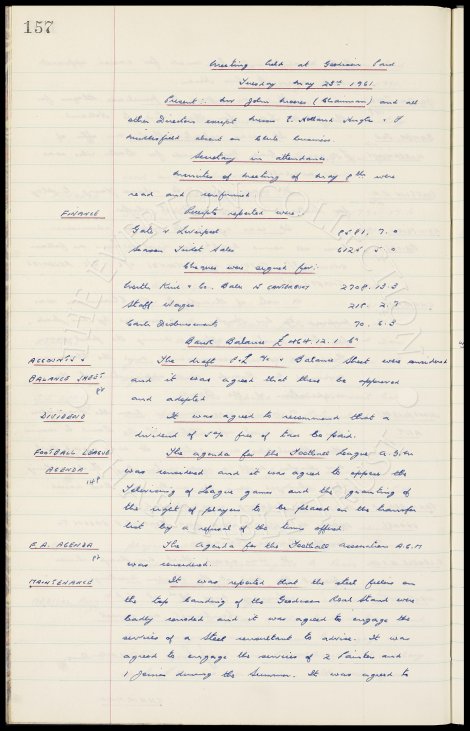 157
Meeting held at Goodison Park
Tuesday May 23rd 1961.
Present:. Mr John Moores (Chairman) and all
other Directors except Messrs E. Holland Hughes & F
Micklesfield absent on Club business.
Secretary in attendance
Minutes of meeting of May 9th were
read and confirmed
FINANCE
Receipts reported were:
Gate, v Liverpool 8581. 7. 0
Season Ticket Sales 6125. 5. 0
Cheques were signed for:-
Keith Kine & Co. Bales 2708. 13. 3
Staff Wages 218. 2. 7
Cash Disbursements 70. 6. 3
Bank Balance £464. 12. 1.
ACCOUNTS &
BALANCE SHEET
The draft P.&L a/c & Balance Sheet were considered
and it was agreed that these be approved
and adopted
DIVIDEND
It was agreed to recommend that a
dividend of 5% free of tax be paid.
FOOTBALL LEAGUE
AGENDA
The agenda for the Football League A.G.M
was considered and it was agreed to oppose the
Televising of League games and the granting of
the right of players to be placed on the transfer
list by a refusal of the terms offered
F. A. AGENDA
The Agenda for the Football Association A.G.M
was considered.
MAINTENANCE
It was reported that the steel on
the top landing of the Goodison Road Stand were
badly corroded and it was agreed to engage the
services of a Steel consultant to advise. It was
agreed to engage the services of 2 Painters and
1 Joiner during the Summer. It was agreed to
THE EVERTON COLLECTION